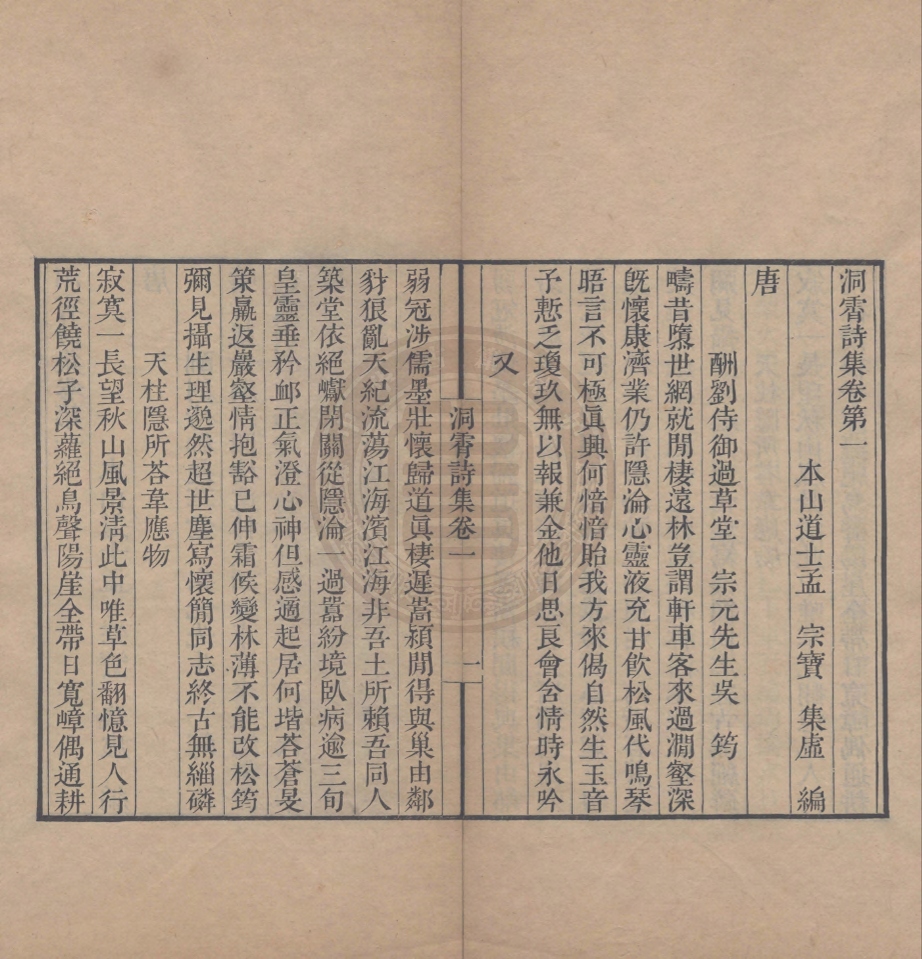 洞霄詩集卷第一
本山道士孟　宗寶　集虛　編
唐
酬劉侍御過草堂　宗元先生吳　筠
疇昔墮世網就閒棲遠林豈謂軒車客來過澗壑深
旣懷康濟業仍許隱淪心靈液充甘飲松風代鳴琴
晤言不可極眞興何愔愔貽我方來偈自然生玉音
子慙乏瓊玖無以報兼金他日思良會含情時永吟
又
洞霄詩集卷一
一
弱冠涉儒墨壯懷歸道眞棲遲嵩潁閒得與巢由鄰
豺狼亂天紀流蕩江海濱江海非吾土所賴吾同人
築堂依絕巘閉關從隱淪一過囂紛境臥病逾三旬
皇靈垂矜卹正氣澄心神但感適起居何堦荅蒼旻
策羸返巖壑情抱豁已伸霜候變林薄不能改松筠
彌見攝生理邈然超世塵寫懷簡同志終古無緇磷
天柱隱所荅韋應物
寂寞一長望秋山風景淸此中唯草色翻憶見人行
荒徑饒松子深蘿絕鳥聲陽崖全帶日寬嶂偶通耕